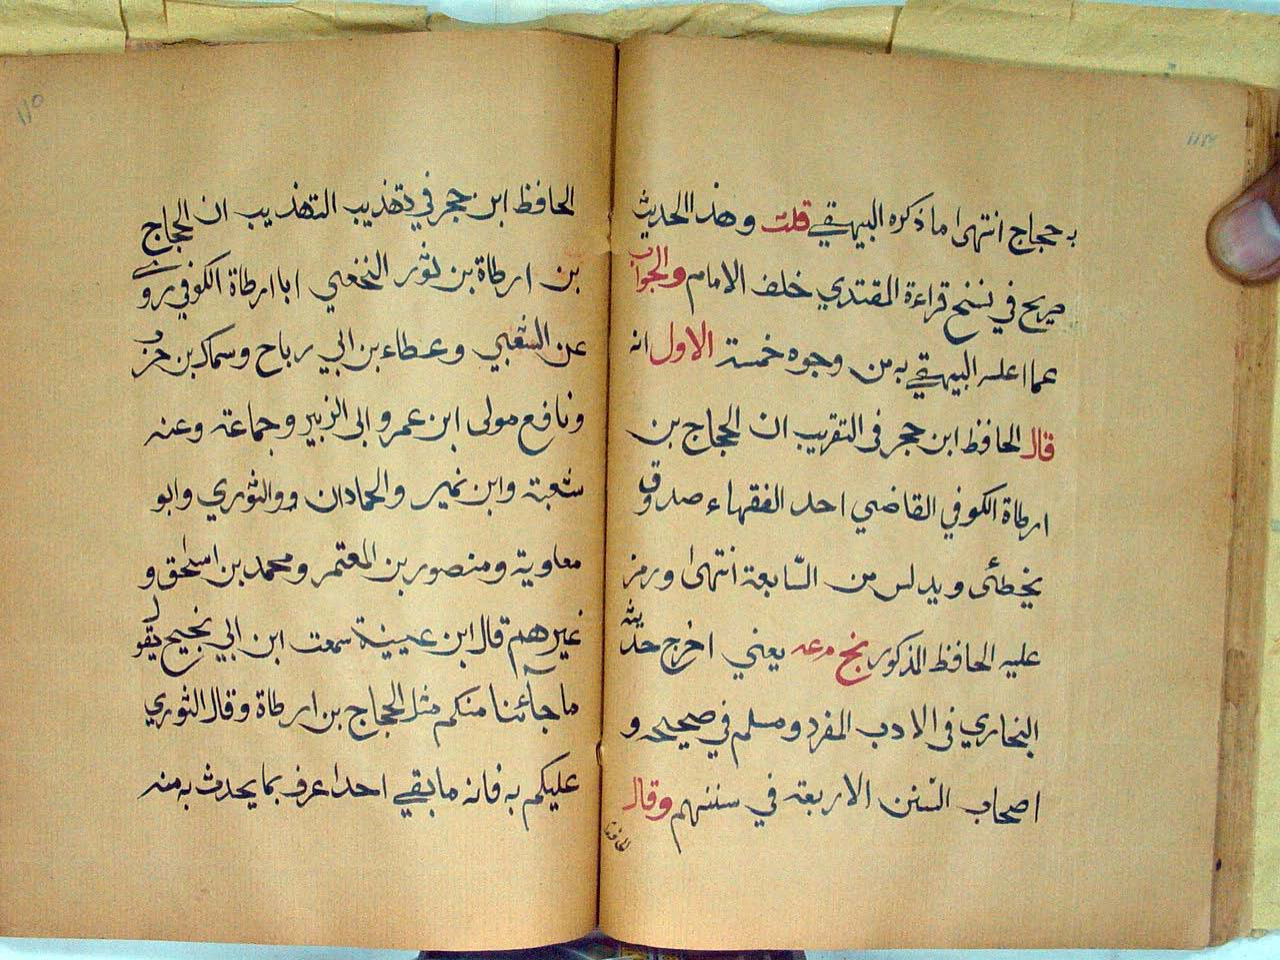 به حجاج انتهى ما ذكره البيهقي قلت وهذا الحديث
صريح في نسخ قراءة المقتدي خلف الامام والجواب
عما اعله البيهقي به من وجوه خمسة الاول انه
قال الحافظ ابن حجر فى التقريب ان الحجاج بن
ارطاة الكوفي القاضي احد الفقهاء صدوق
يخطئ ويدلس من السّابعة انتهى ورمز
عليه الحافظ المذكور بخ مرعه يعني اخرج حديثه
البخاري فى الادب المفرد ومسلم في صحيحه و
اصحاب السّنن الاربعة في سننهم وقال
الحافظ
١١٥
الحافظ ابن حجر في تهذيب التهذيب ان الحجاج
بن ارطاة بن ثور النخعي ابا ارطاة الكوفي روى
عن الشعبي وعطاء بن ابي رباح وسماك بن حرب
ونافع مولى ابن عمر وابى الزبير وجماعة وعنه
شعبة وابن نمير والحمادان ووالثوري وابو
معاوية ومنصور بن المعتمر ومحمد بن اسحق و
غيرهم قال ابن عيينة سمعت ابن ابي نجيح يقول
ما جآئنا منكم مثل الحجاج بن ارطاة وقال الثوري
عليكم به فانه ما بقي احد اعرف بما يحدث به منه